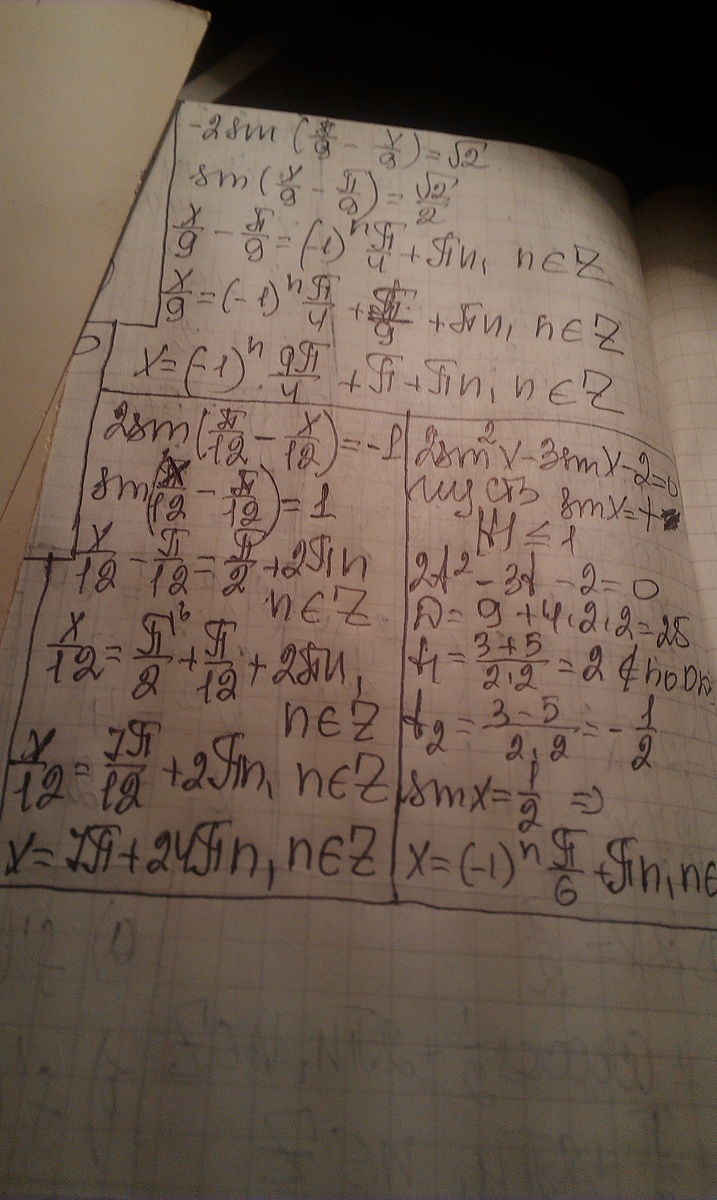 -2sin(π/9 - x/9) = √2
sin(x/9 - π/9) = √2/2
x/9 - π/9 = (-1)ⁿ π/4 + πn, n∈Z
x/9 = (-1)ⁿ π/4 + π/9 + πn, n∈Z
x = (-1)ⁿ · 9π/4 + π + πn, n∈Z
2sin(π/12 - x/12) = -1
sin(x/12 - π/12) = 1
x/12 - π/12 = π/2 + 2πn
n∈Z
x/12 = π/2 + π/12 + 2πn,
n∈Z
x/12 = 7π/12 + 2πn, n∈Z
x = 7π + 24πn, n∈Z
2sin²x - 3sinx - 2 = 0
пусть sinx = t
|t| ≤ 1
2t² - 3t - 2 = 0
D = 9 + 4·2·2 = 25
t₁ = (3+5)/(2·2) = 2 ∉ по ОДЗ
t₂ = (3-5)/(2·2) = -1/2
sinx = 1/2 ⇒
x = (-1)ⁿ π/6 + πn, n∈